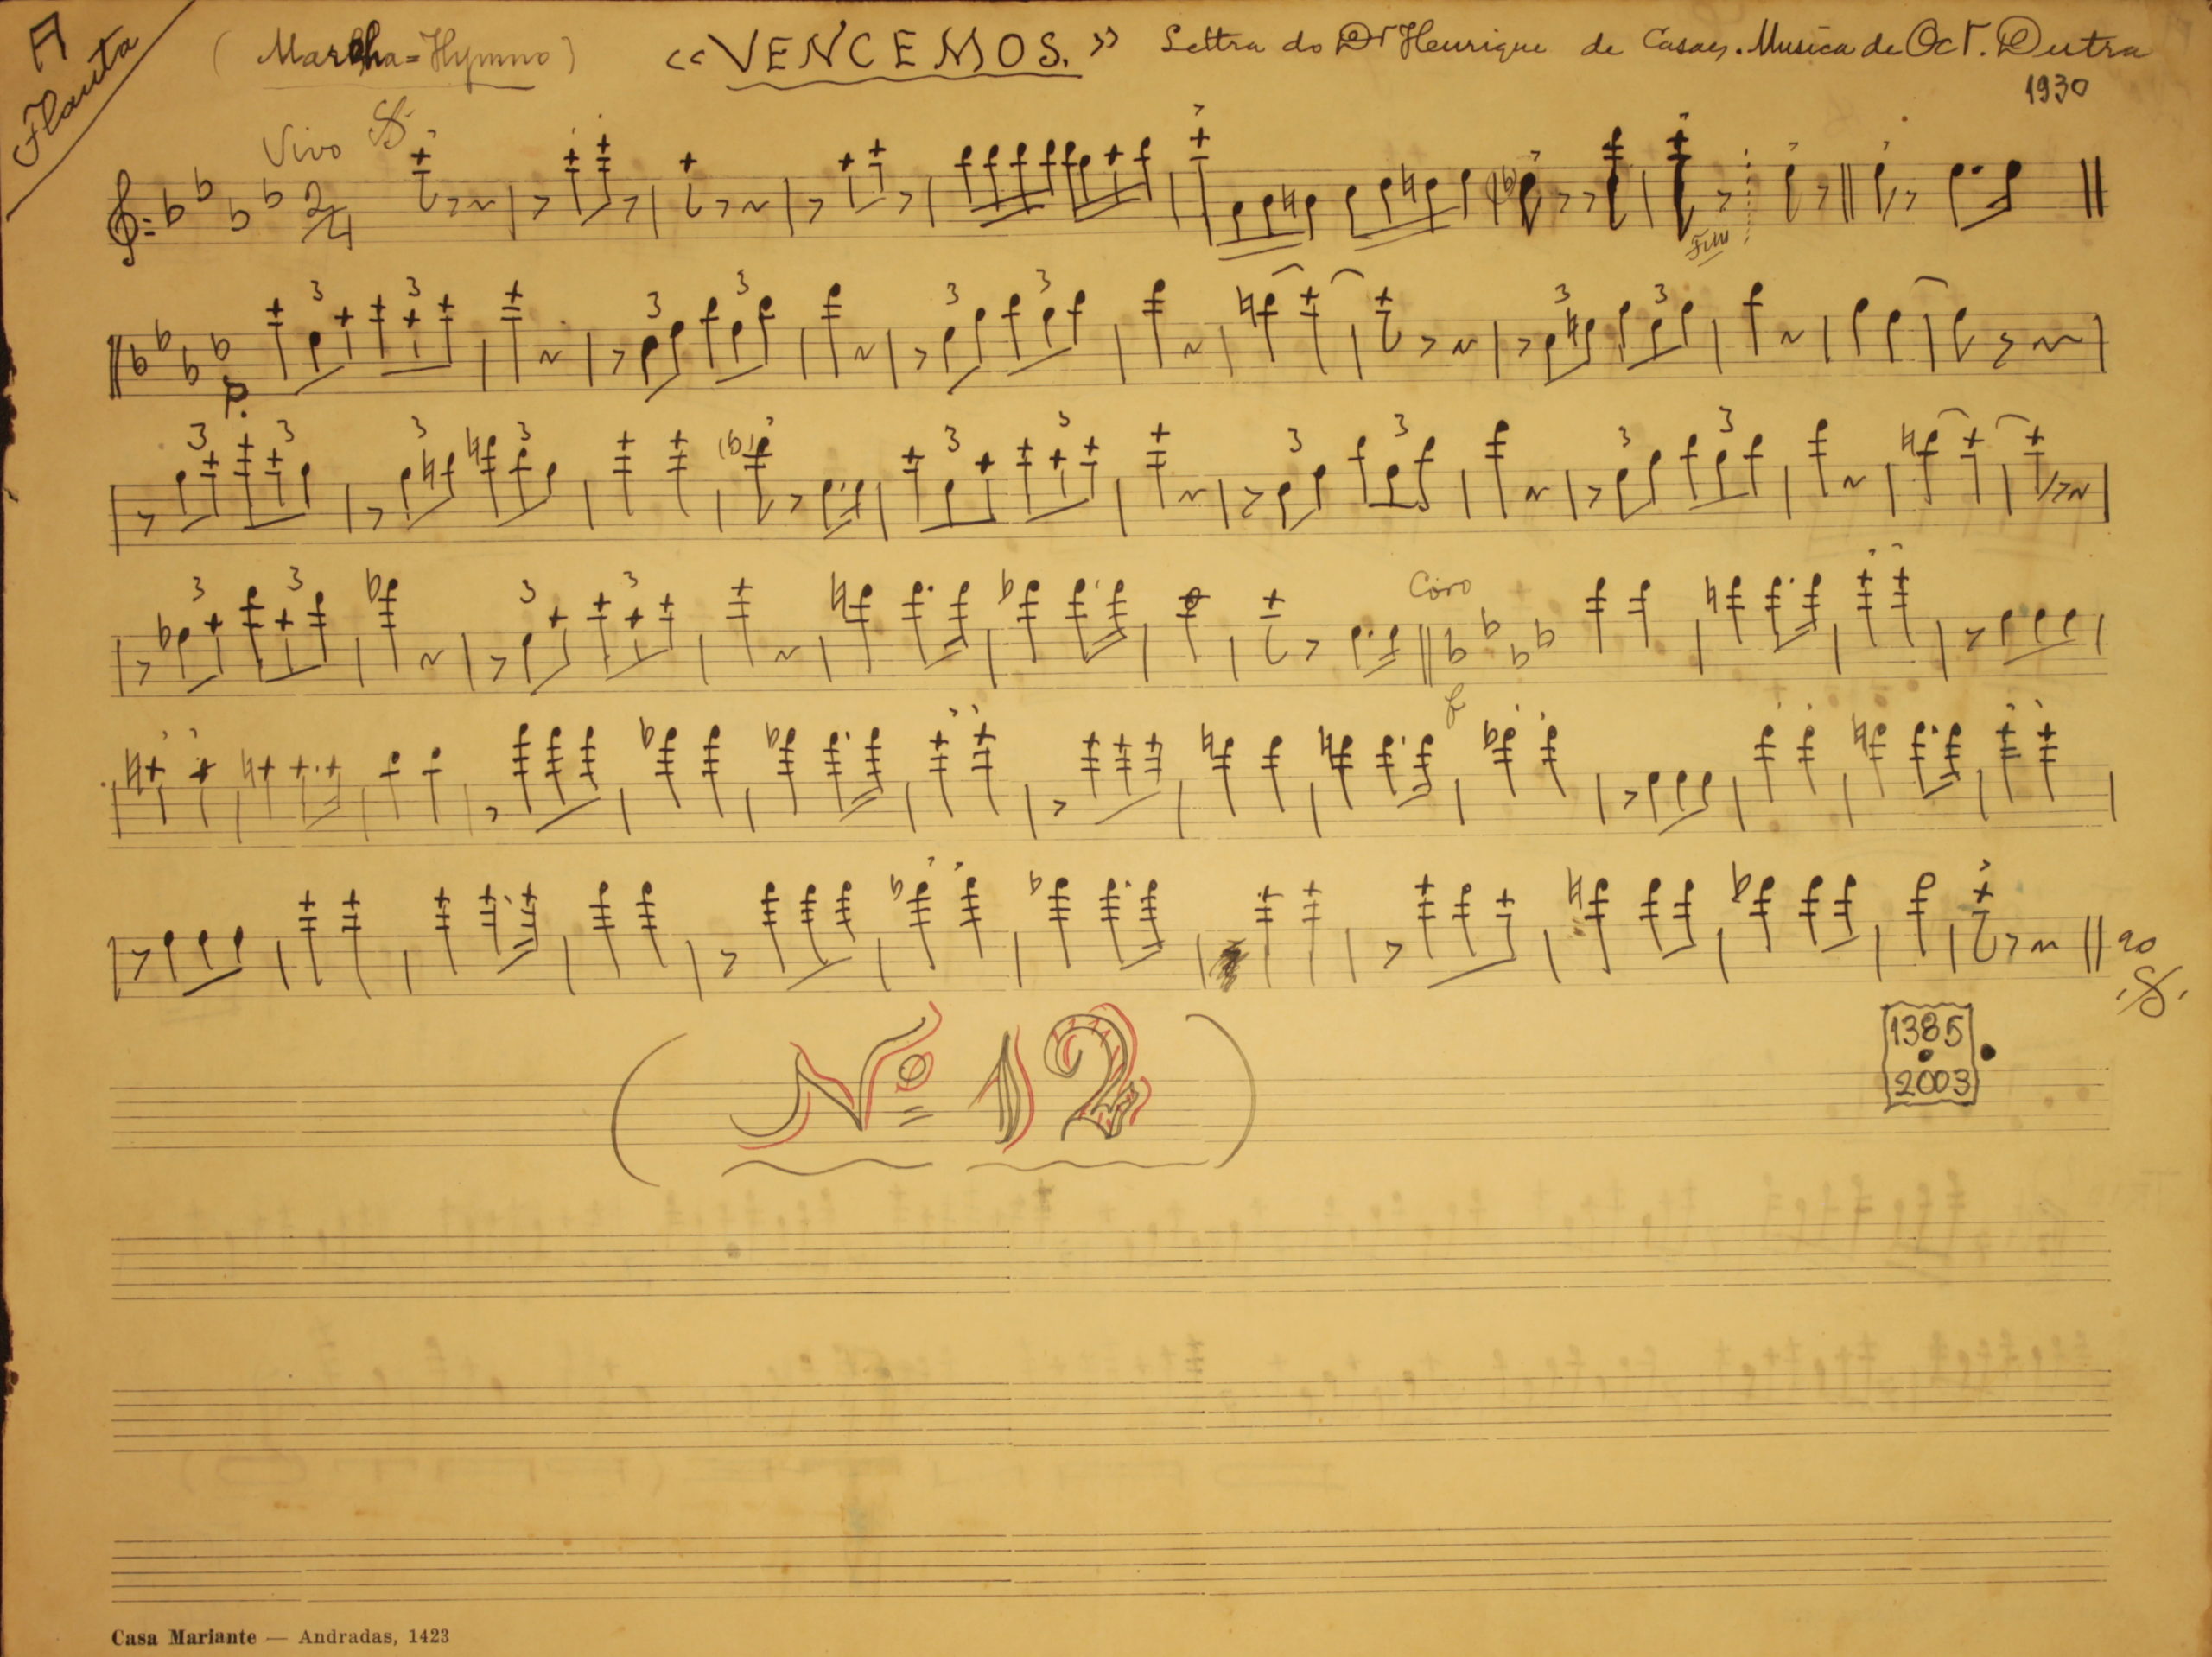 A
Flauta
(Marcha=Hymno) «VENCEMOS.» Lettra do Dr Henrique de Casaes. Musica de Oct. Dutra
1930
Vivo
2/4
Fim
3 3 3 3 3 3 3 3
P.
3 3 3 3 3 3 3 3 3 3
3 3 3 3
Côro
f
ao
(Nº 12)
1385
2003
Casa Mariante — Andradas, 1423